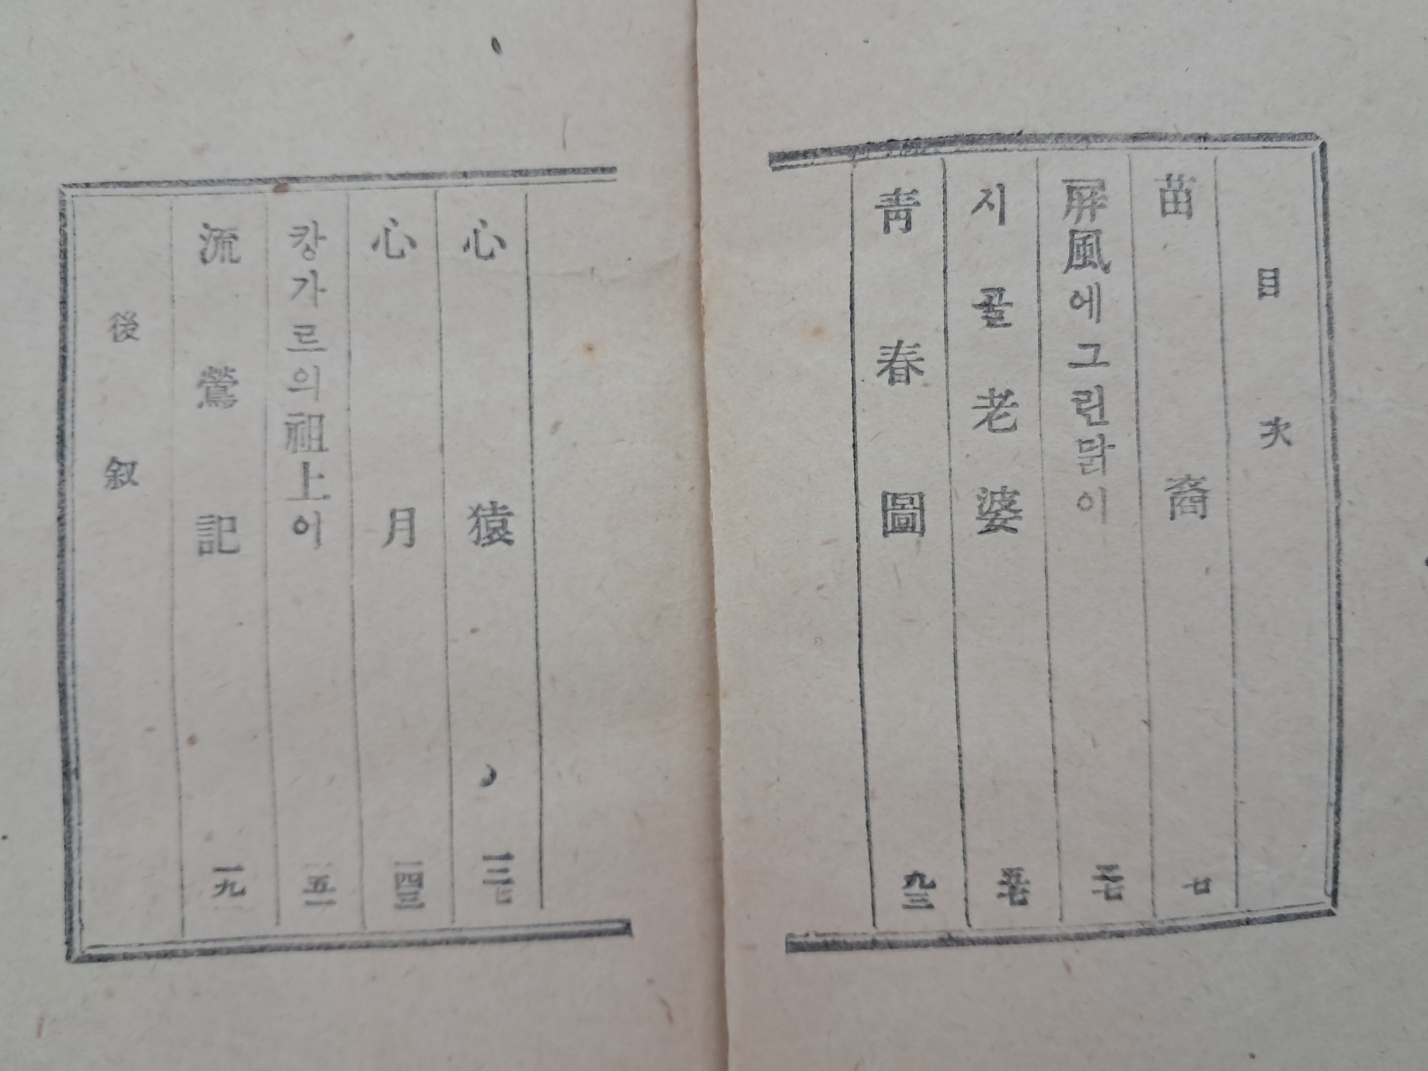 目次
苗裔 七
屛風에그린닭이 二七
시골老婆 五七
靑春圖 九三
心猿 一二七
心月 一四三
캉가르의祖上이 一五一
流鶯記 一九一
後叙